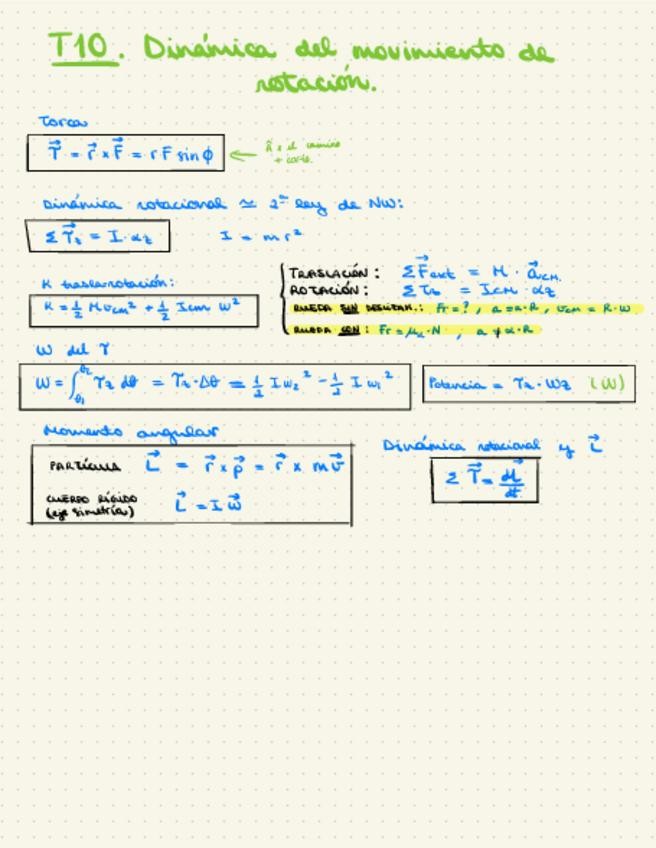 T10. Dinámica del movimiento de
rotación.
Torca
τ⃗ = r⃗ × F⃗ = r F sin ϕ
el camino
+ corto.
Dinámica rotacional ≃ 2ª ley de NW:
Σ τ⃗z = I · αz
I = m r²
K traslarrotación:
K = 1/2 M vcm² + 1/2 Icm W²
TRASLACIÓN: Σ F⃗ext = M · a⃗CM.
ROTACIÓN: Σ τz = ICM · αz
RUEDA SIN DESLIZAM.: Fr = ?, a = α·R, vCM = R·w
RUEDA CON: Fr = μk·N, a ≠ α·R
W del τ
W = ∫θ1^θ2 τz dθ = τz · Δθ = 1/2 I w₂² - 1/2 I w₁²
Potencia = τz · wz (W)
Momento angular
PARTÍCULA L⃗ = r⃗ × p⃗ = r⃗ × m v⃗
CUERPO RÍGIDO
(eje simetría) L⃗ = I w⃗
Dinámica rotacional y L⃗
Σ τ⃗ = dL⃗/dt